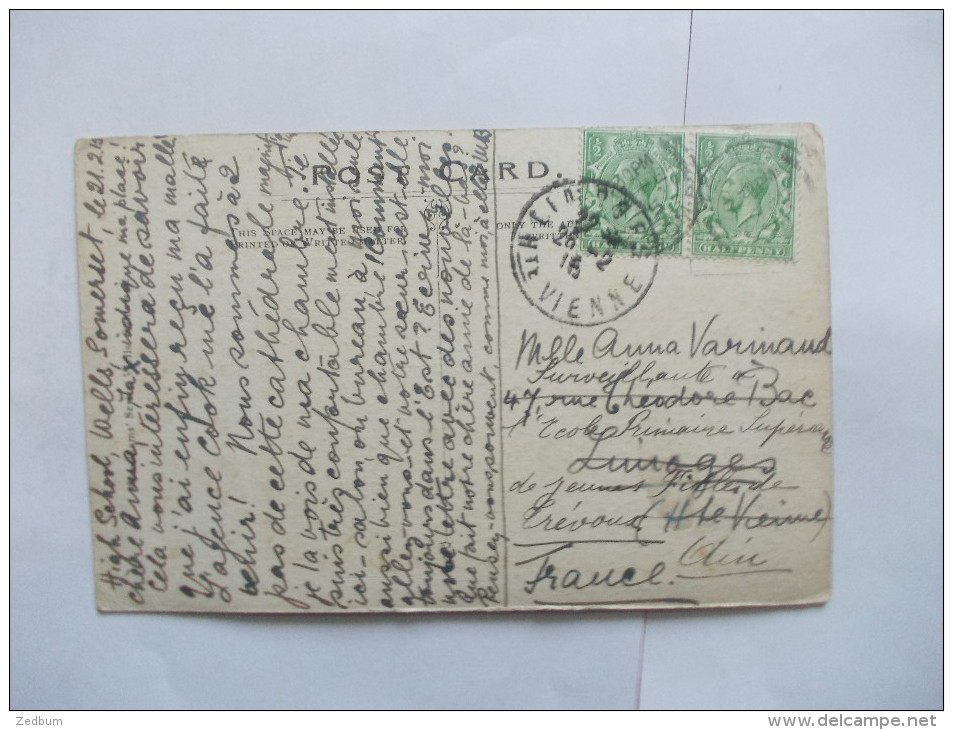 POST CARD.
THIS SPACE MAY BE USED FOR
PRINTED OR WRITTEN MATTER
ONLY THE
WRITTEN
HALFPENNY
HALFPENNY
LIMOGES
VIENNE
High School, Wells, Somerset, le 21.2.
chère Annia, indique ma place!
Cela vous intéressera de savoir
que j'ai enfin reçu ma malle
L'agence Cook me l'a faite
venir! Nous sommes à 2
pas de cette cathédrale
je la vois de ma chambre. Je
suis très confortablement installée
ici - salon, ou bureau, à moi seule
aussi bien que chambre. Comment
allez-vous et votre soeur est-elle
toujours dans l'Est? Ecrivez-moi
une lettre avec des nouvelles.
Que fait notre chère amie de là-bas?
Pensez-vous souvent, comme moi, à elle?
Melle Anna Varinaud
Surveillante à
47, rue Théodore Bac
l'Ecole Primaire Supérieure
Limoges
de jeunes Filles de
Trévoux (Hte Vienne)
Ain
France.
Zedbum
www.delcampe.net